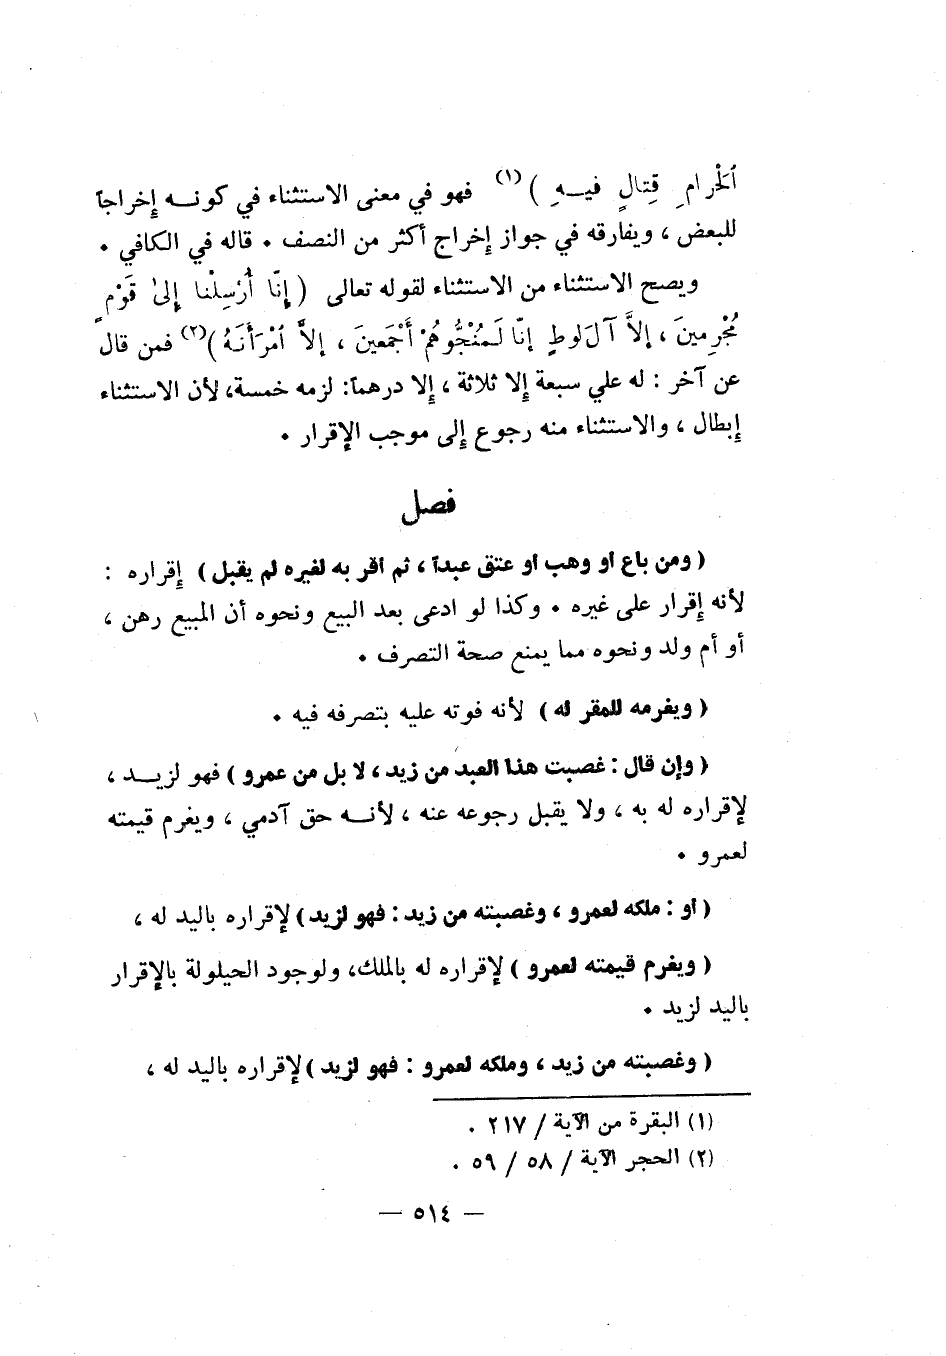 ٱلْحَرَامِ قِتَالٍ فِيهِ )(١) فهو في معنى الاستثناء في كونه إخراجاً
للبعض ، ويفارقه في جواز إخراج أكثر من النصف . قاله في الكافي .
ويصح الاستثناء من الاستثناء لقوله تعالى ( إِنَّا أُرْسِلْنَا إِلَىٰ قَوْمٍ
مُجْرِمِينَ ، إِلاَّ آلَ لُوطٍ إِنَّا لَمُنْجُوهُمْ أَجْمَعِينَ ، إِلاَّ ٱمْرَأَتَهُ )(٢) فمن قال
عن آخر : له علي سبعة إلا ثلاثة ، إلا درهماً: لزمه خمسة، لأن الاستثناء
إبطال ، والاستثناء منه رجوع إلى موجب الإقرار .
فصل
( ومن باع او وهب او عتق عبداً ، ثم اقر به لغيره لم يقبل ) إقراره :
لأنه إقرار على غيره . وكذا لو ادعى بعد البيع ونحوه أن المبيع رهن ،
أو أم ولد ونحوه مما يمنع صحة التصرف .
( ويغرمه للمقر له ) لأنه فوته عليه بتصرفه فيه .
( وإن قال : غصبت هذا العبد من زيد ، لا بل من عمرو ) فهو لزيد ،
لإقراره له به ، ولا يقبل رجوعه عنه ، لأنه حق آدمي ، ويغرم قيمته
لعمرو .
( او : ملكه لعمرو ، وغصبته من زيد : فهو لزيد ) لإقراره باليد له ،
( ويغرم قيمته لعمرو ) لإقراره له بالملك، ولوجود الحيلولة بالإقرار
باليد لزيد .
( وغصبته من زيد ، وملكه لعمرو : فهو لزيد ) لإقراره باليد له ،
(١) البقرة من الآية / ٢١٧ .
(٢) الحجر الآية / ٥٨ / ٥٩ .
— ٥١٤ —